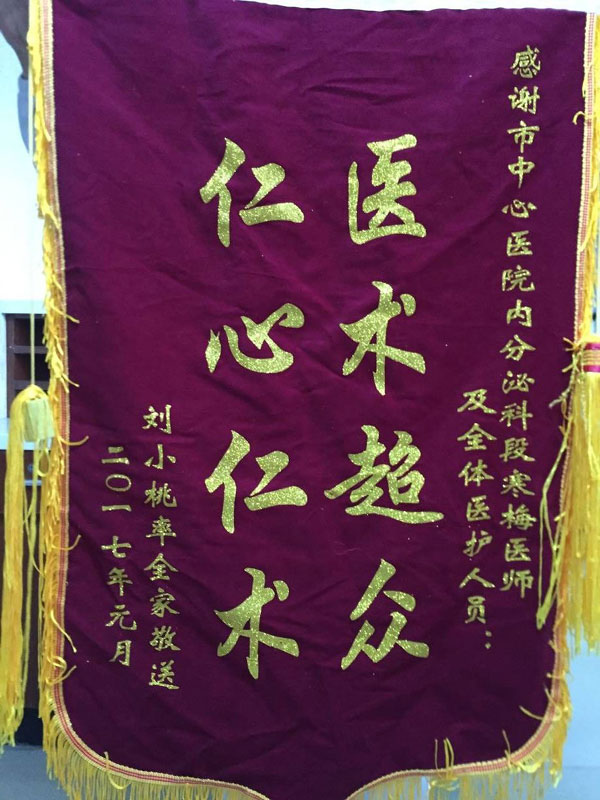 感谢市中心医院内分泌科段寒梅医师
及全体医护人员：
医术超众
仁心仁术
刘小桃率全家敬送
二〇一七年元月